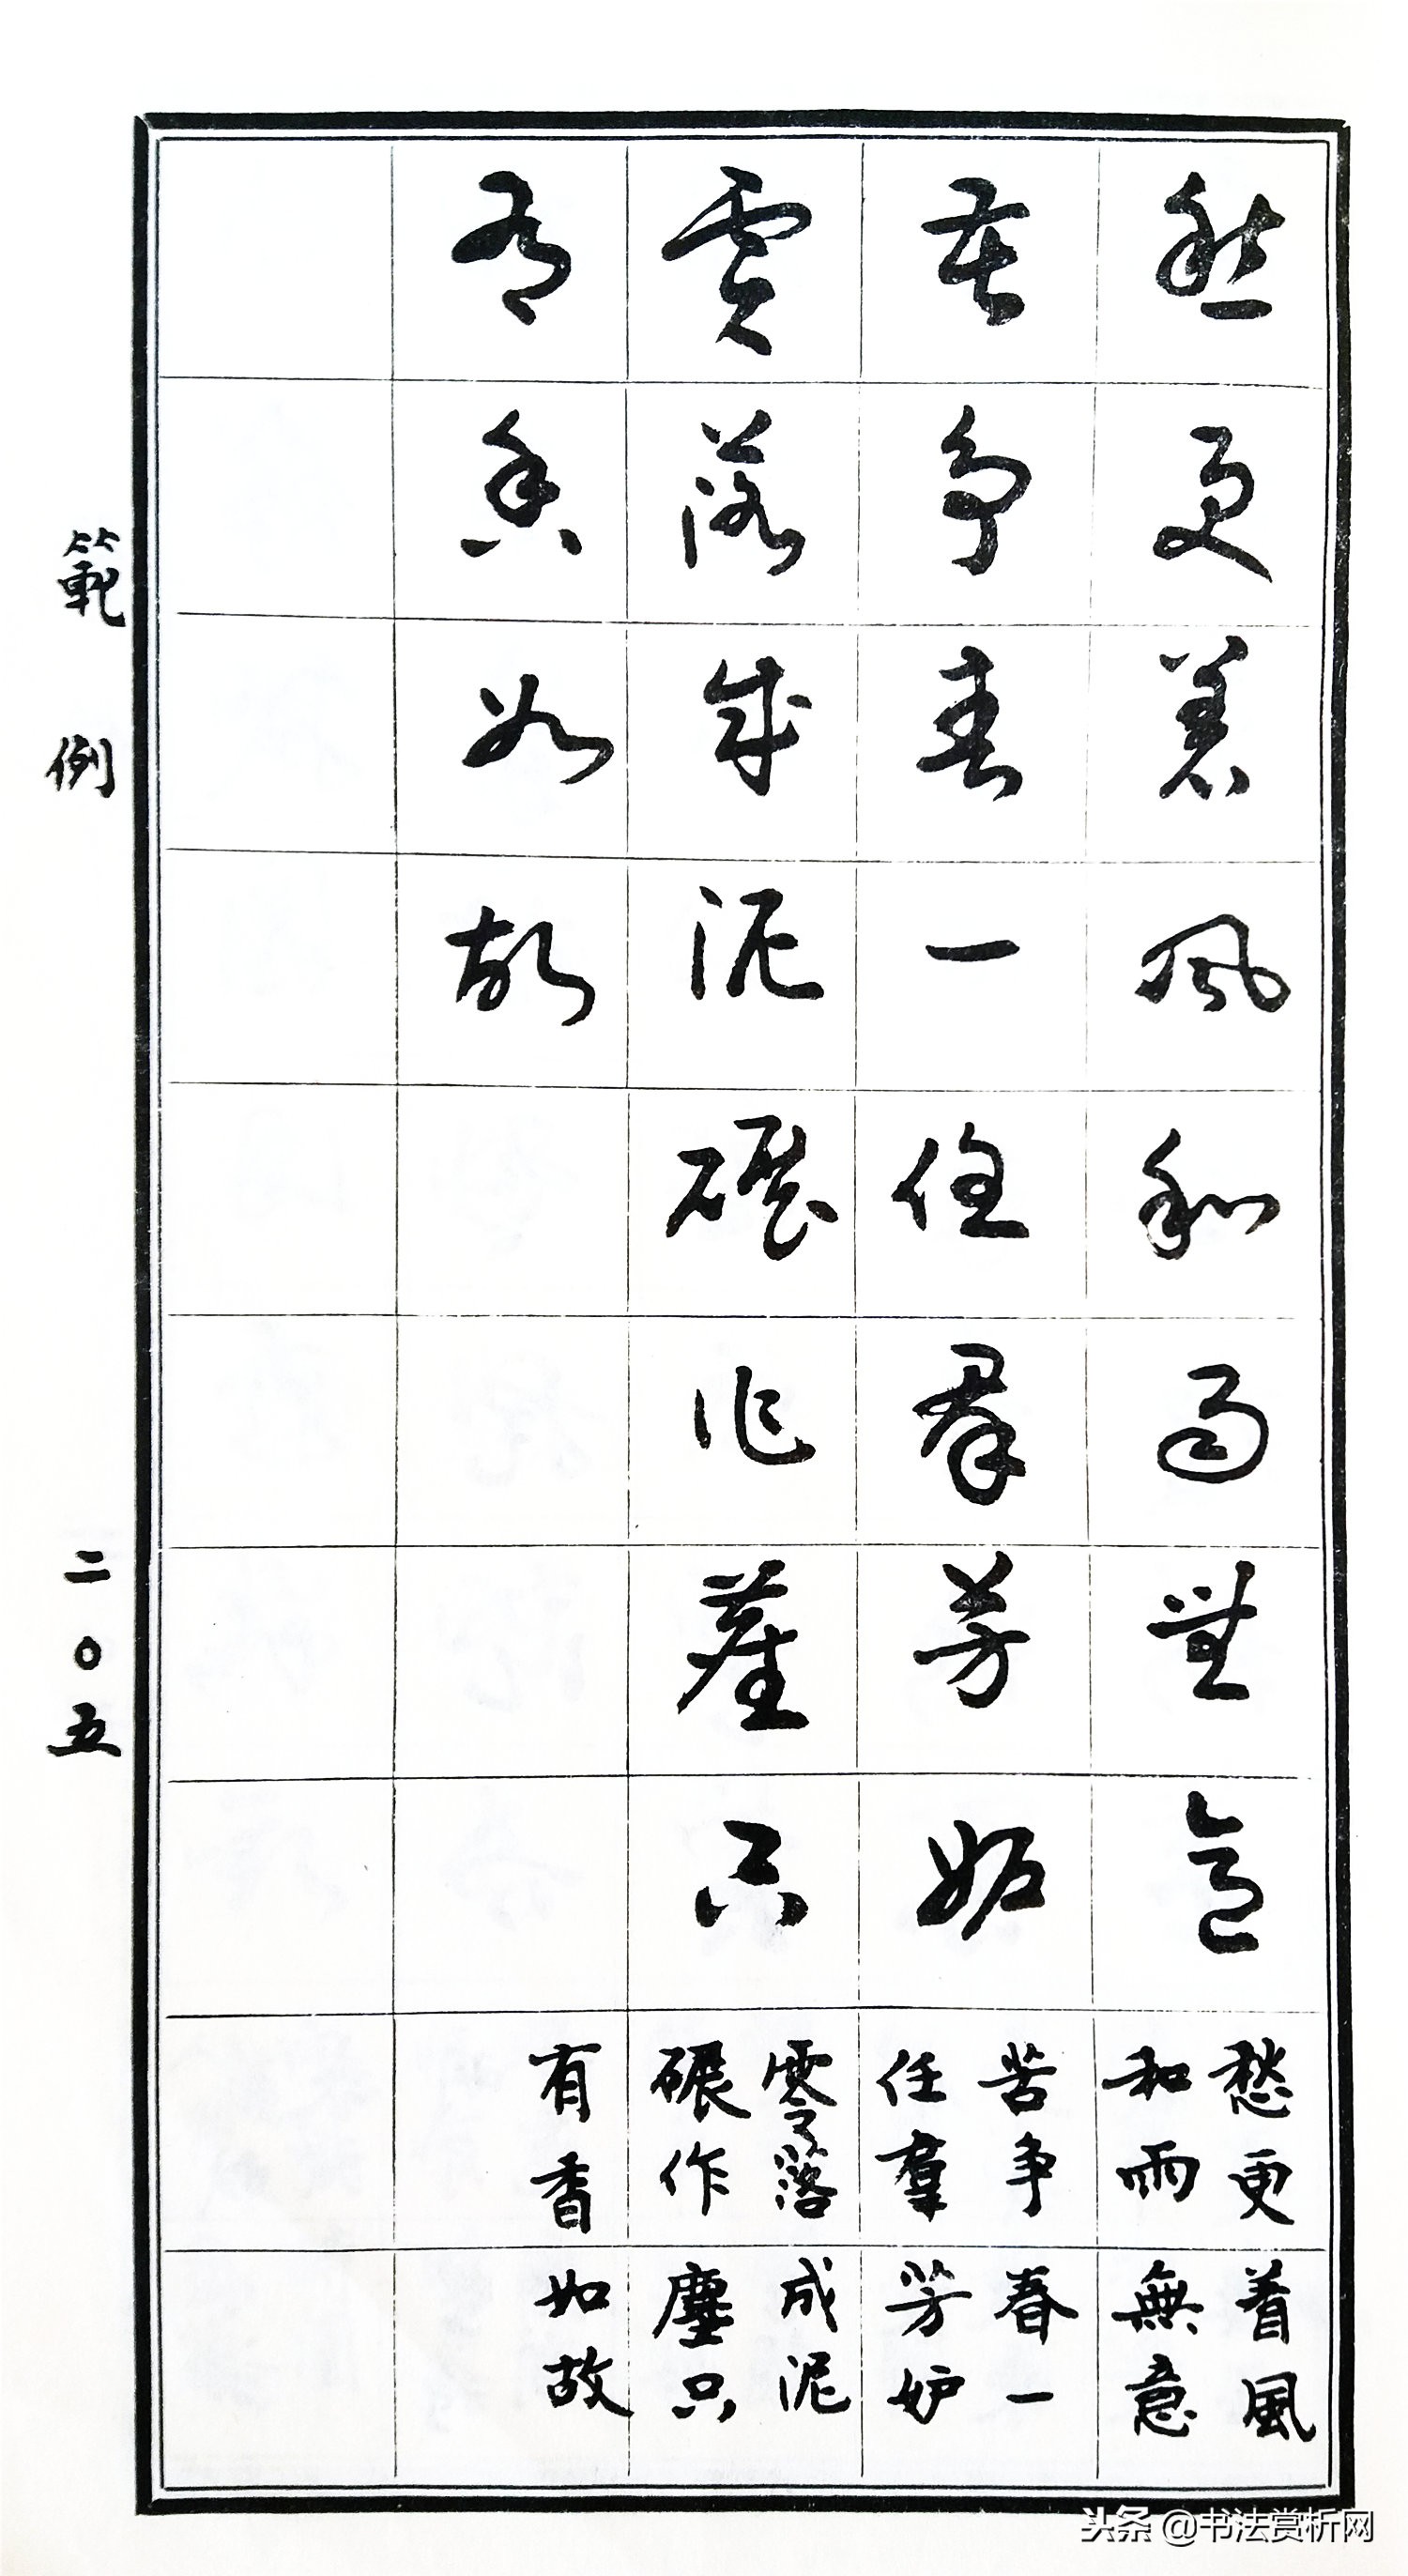 愁更着風和雨無意
苦争春一任羣芳妒
零落成泥碾作塵只
有香如故
愁更着風
和雨無意
苦争春一
任羣芳妒
零落成泥
碾作塵只
有香如故
範例
二〇五
头条 @书法赏析网